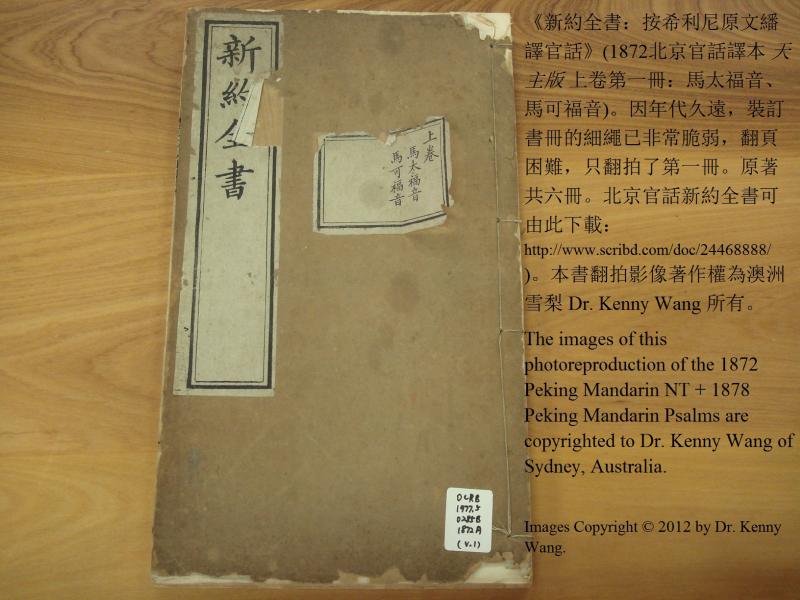 新約全書
上卷
馬太福音
馬可福音
DLRB
1977.5
0285B
1872A
(v.1)
《新約全書：按希利尼原文繙
譯官話》(1872北京官話譯本 天
主版 上卷第一冊：馬太福音、
馬可福音)。因年代久遠，裝訂
書冊的細繩已非常脆弱，翻頁
困難，只翻拍了第一冊。原著
共六冊。北京官話新約全書可
由此下載：
http://www.scribd.com/doc/24468888/
)。本書翻拍影像著作權為澳洲
雪梨 Dr. Kenny Wang 所有。
The images of this
photoreproduction of the 1872
Peking Mandarin NT + 1878
Peking Mandarin Psalms are
copyrighted to Dr. Kenny Wang of
Sydney, Australia.
Images Copyright © 2012 by Dr. Kenny
Wang.